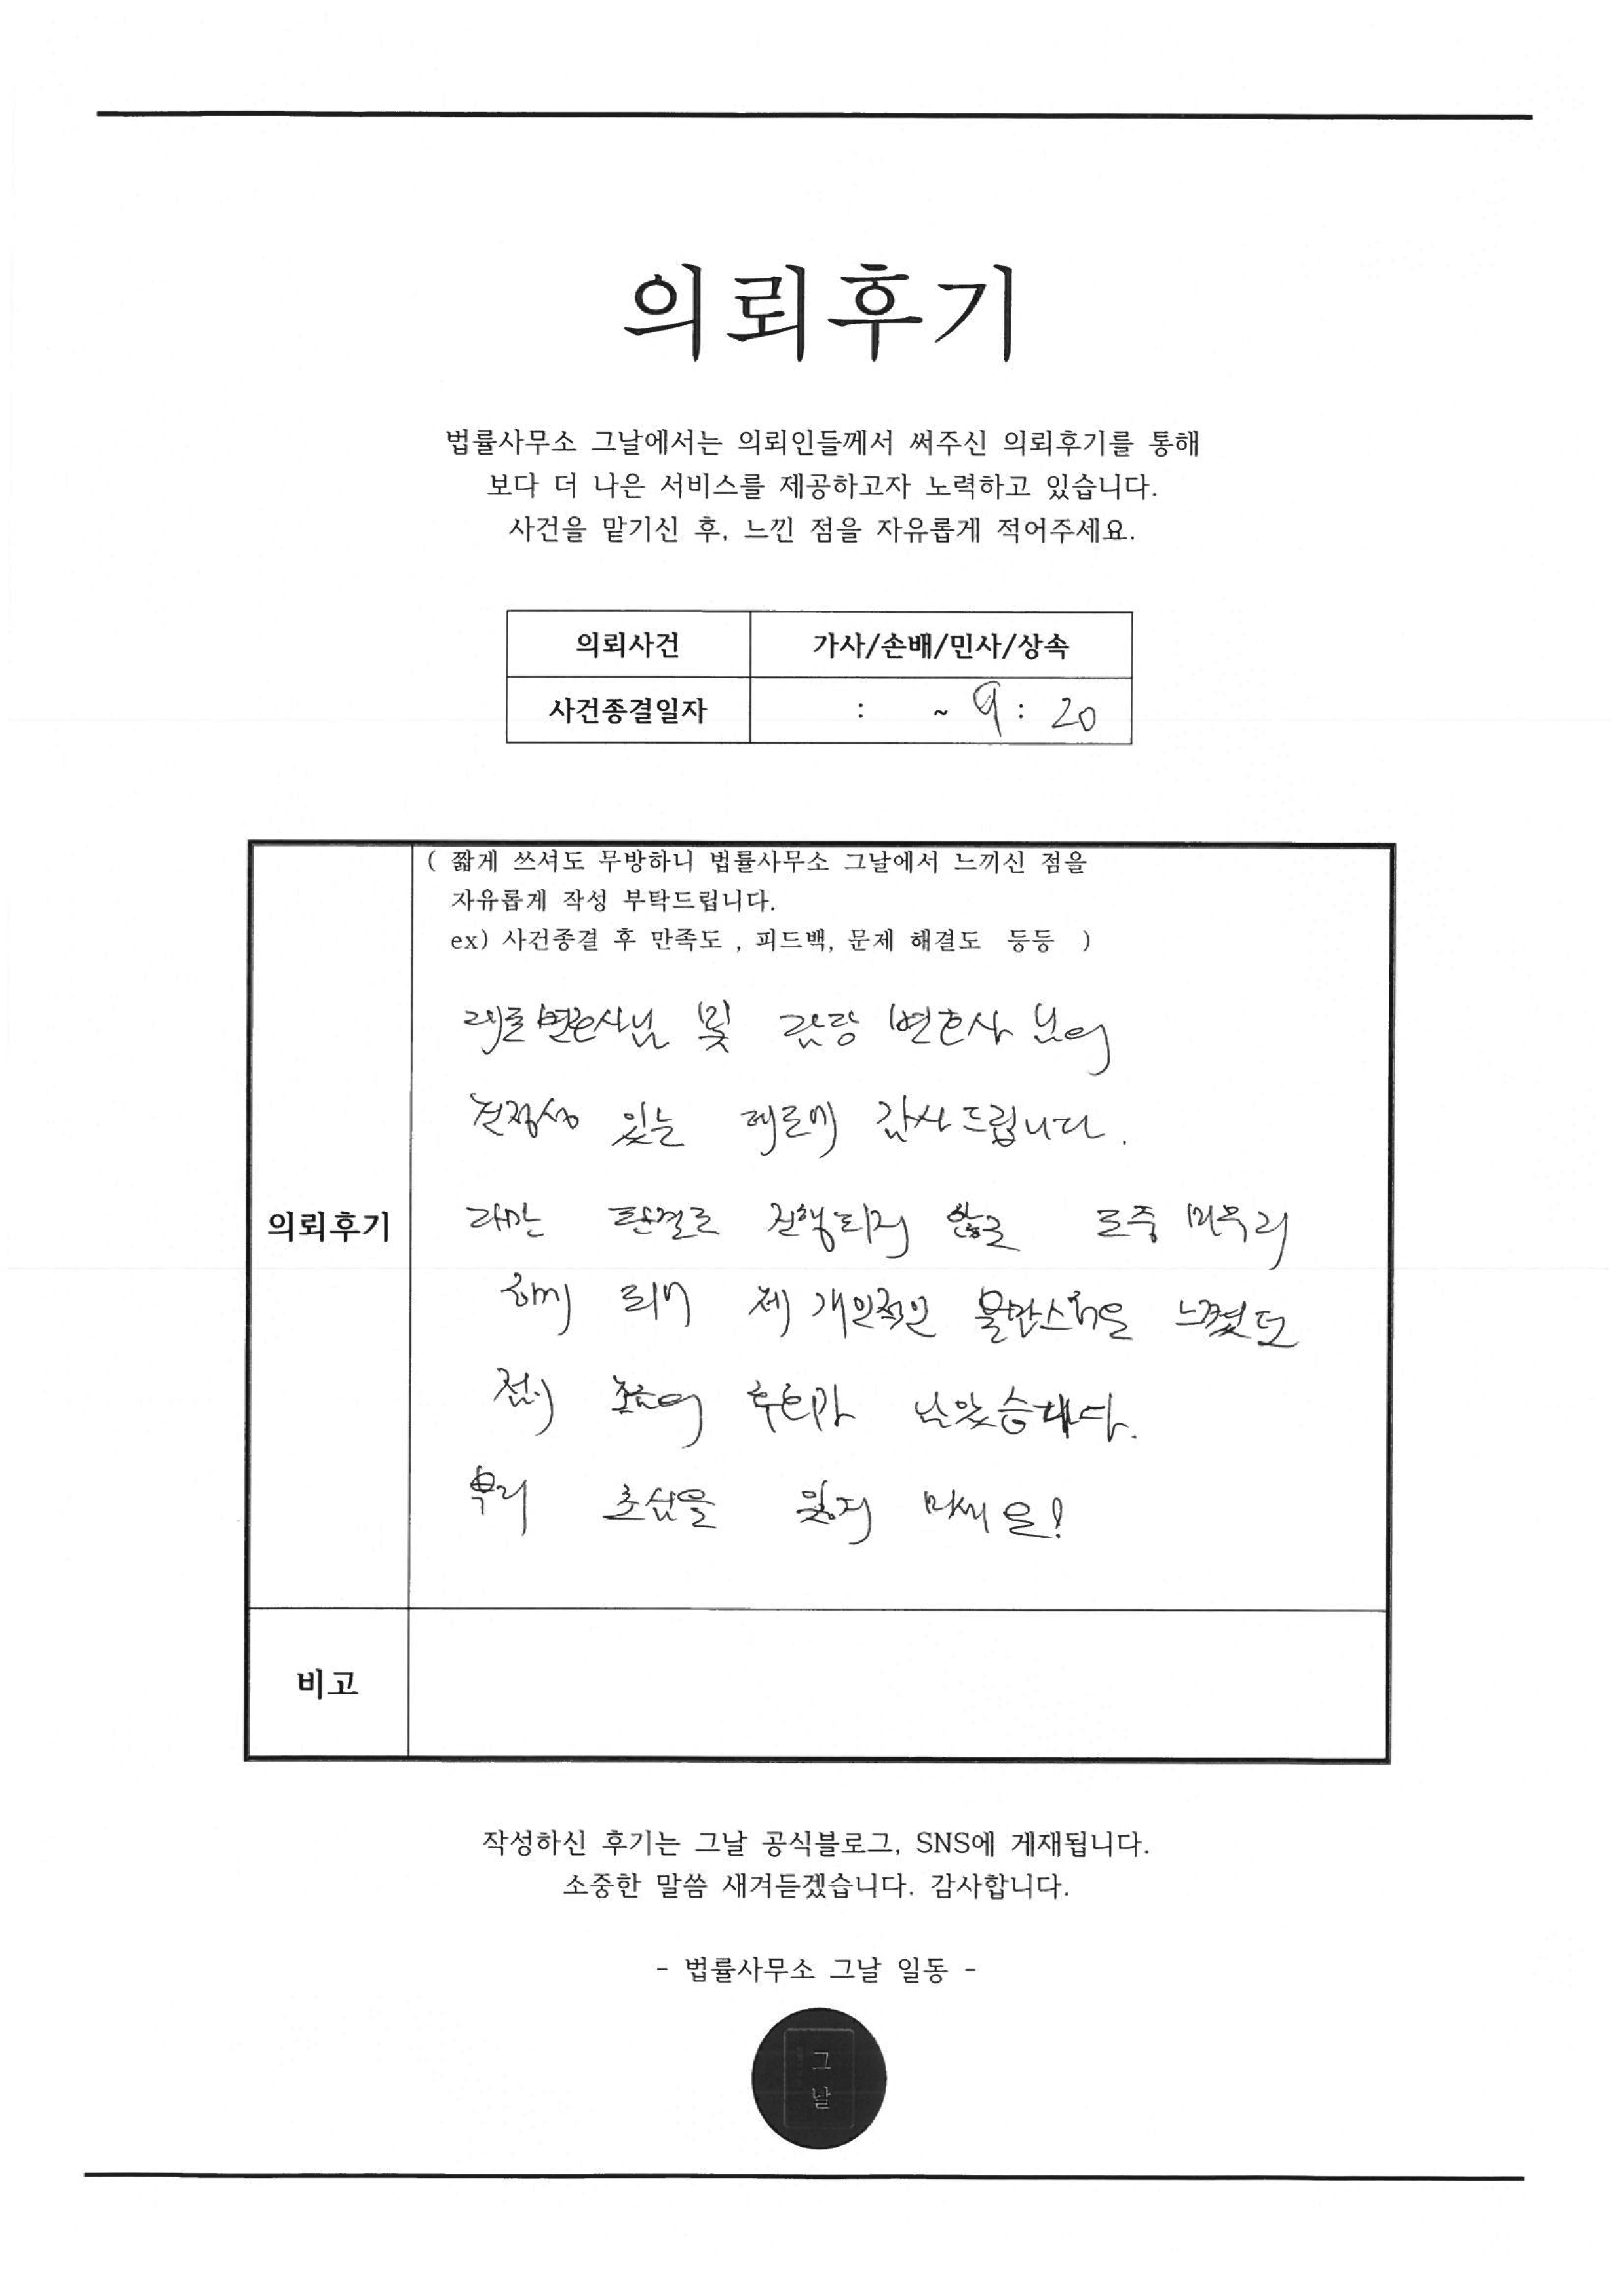 의뢰후기
법률사무소 그날에서는 의뢰인들께서 써주신 의뢰후기를 통해
보다 더 나은 서비스를 제공하고자 노력하고 있습니다.
사건을 맡기신 후, 느낀 점을 자유롭게 적어주세요.
의뢰사건 가사/손배/민사/상속
사건종결일자 : ~ 9 : 20
( 짧게 쓰셔도 무방하니 법률사무소 그날에서 느끼신 점을
자유롭게 작성 부탁드립니다.
ex) 사건종결 후 만족도 , 피드백, 문제 해결도 등등 )
변호사님 및 변호사 님의
있는 감사드립니다.
다만 판결로 진행되지 않고 도중 마무리
하게 되어 제 개인적인 불만스러움을 느꼈던
점이 조금의 후회가 남았습니다.
의뢰후기
부디 초심을 잃지 마세요!
비고
작성하신 후기는 그날 공식블로그, SNS에 게재됩니다.
소중한 말씀 새겨듣겠습니다. 감사합니다.
- 법률사무소 그날 일동 -
그
날